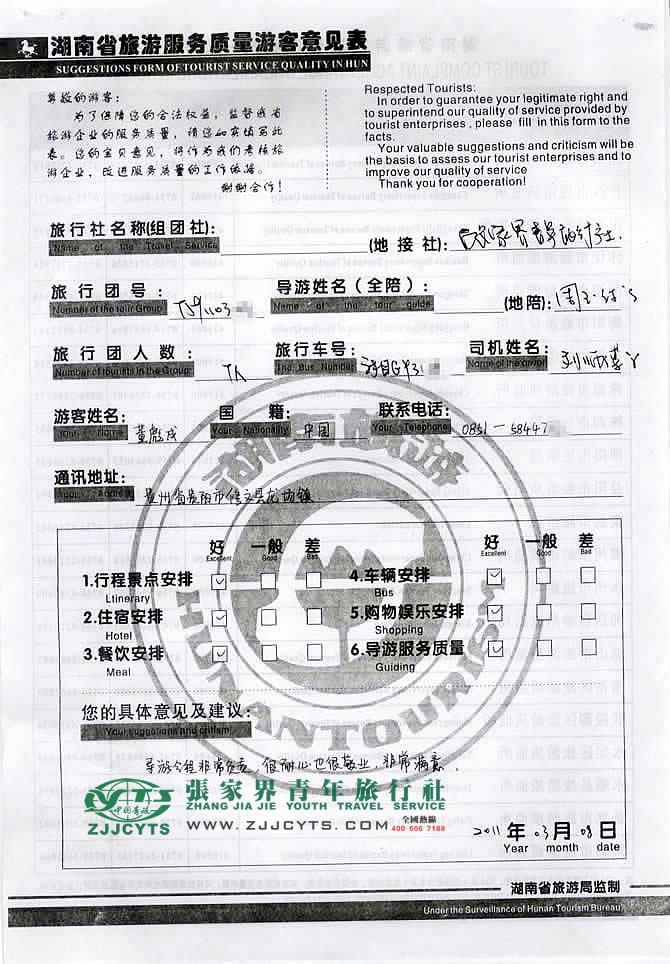 湖南省旅游服务质量游客意见表
SUGGESTIONS FORM OF TOURIST SERVICE QUALITY IN HUN
尊敬的游客:
为了保障您的合法权益，监督我省
旅游企业的服务质量，请您如实填写此
表。您的宝贝意见，将作为我们考核旅
游企业，改进服务质量的工作依据。
谢谢合作!
Respected Tourists:
In order to guarantee your legitimate right and
to superintend our quality of service provided by
tourist enterprises , please fill in this form to the
facts.
Your valuable suggestions and criticism will be
the basis to assess our tourist enterprises and to
improve our quality of service
Thank you for cooperation!
旅行社名称(组团社):
Name of the Travel Service
(地接社): 张家界青年旅行社
旅行团号:
Number of the tour Group
导游姓名(全陪):
Name of the tour guide
(地陪):
旅行团人数:
Number of tourists in the Group
旅行车号:
The Bus Number
司机姓名:
Name of the driver
游客姓名:
Your Name
国籍: 中国
Your Nationality
联系电话: 0851-58447
Your Telephone
通讯地址: 贵州省贵阳市修文县龙场镇
Your Address
好 一般 差
Excellent Good Bad
好 一般 差
Excellent Good Bad
1.行程景点安排
Ltinerary
4.车辆安排
Bus
2.住宿安排
Hotel
5.购物娱乐安排
Shopping
3.餐饮安排
Meal
6.导游服务质量
Guiding
HUNAN TOURISM
您的具体意见及建议:
Your suggestions and critism
导游全程非常负责，很耐心也很敬业，非常满意.
中国青旅
ZJJCYTS
張家界青年旅行社
ZHANG JIA JIE YOUTH TRAVEL SERVICE
WWW.ZJJCYTS.COM
全國熱線
400 606 7188
2011 年 03 月 08 日
Year month date
湖南省旅游局监制
Under the Surveillance of Hunan Tourism Bureau